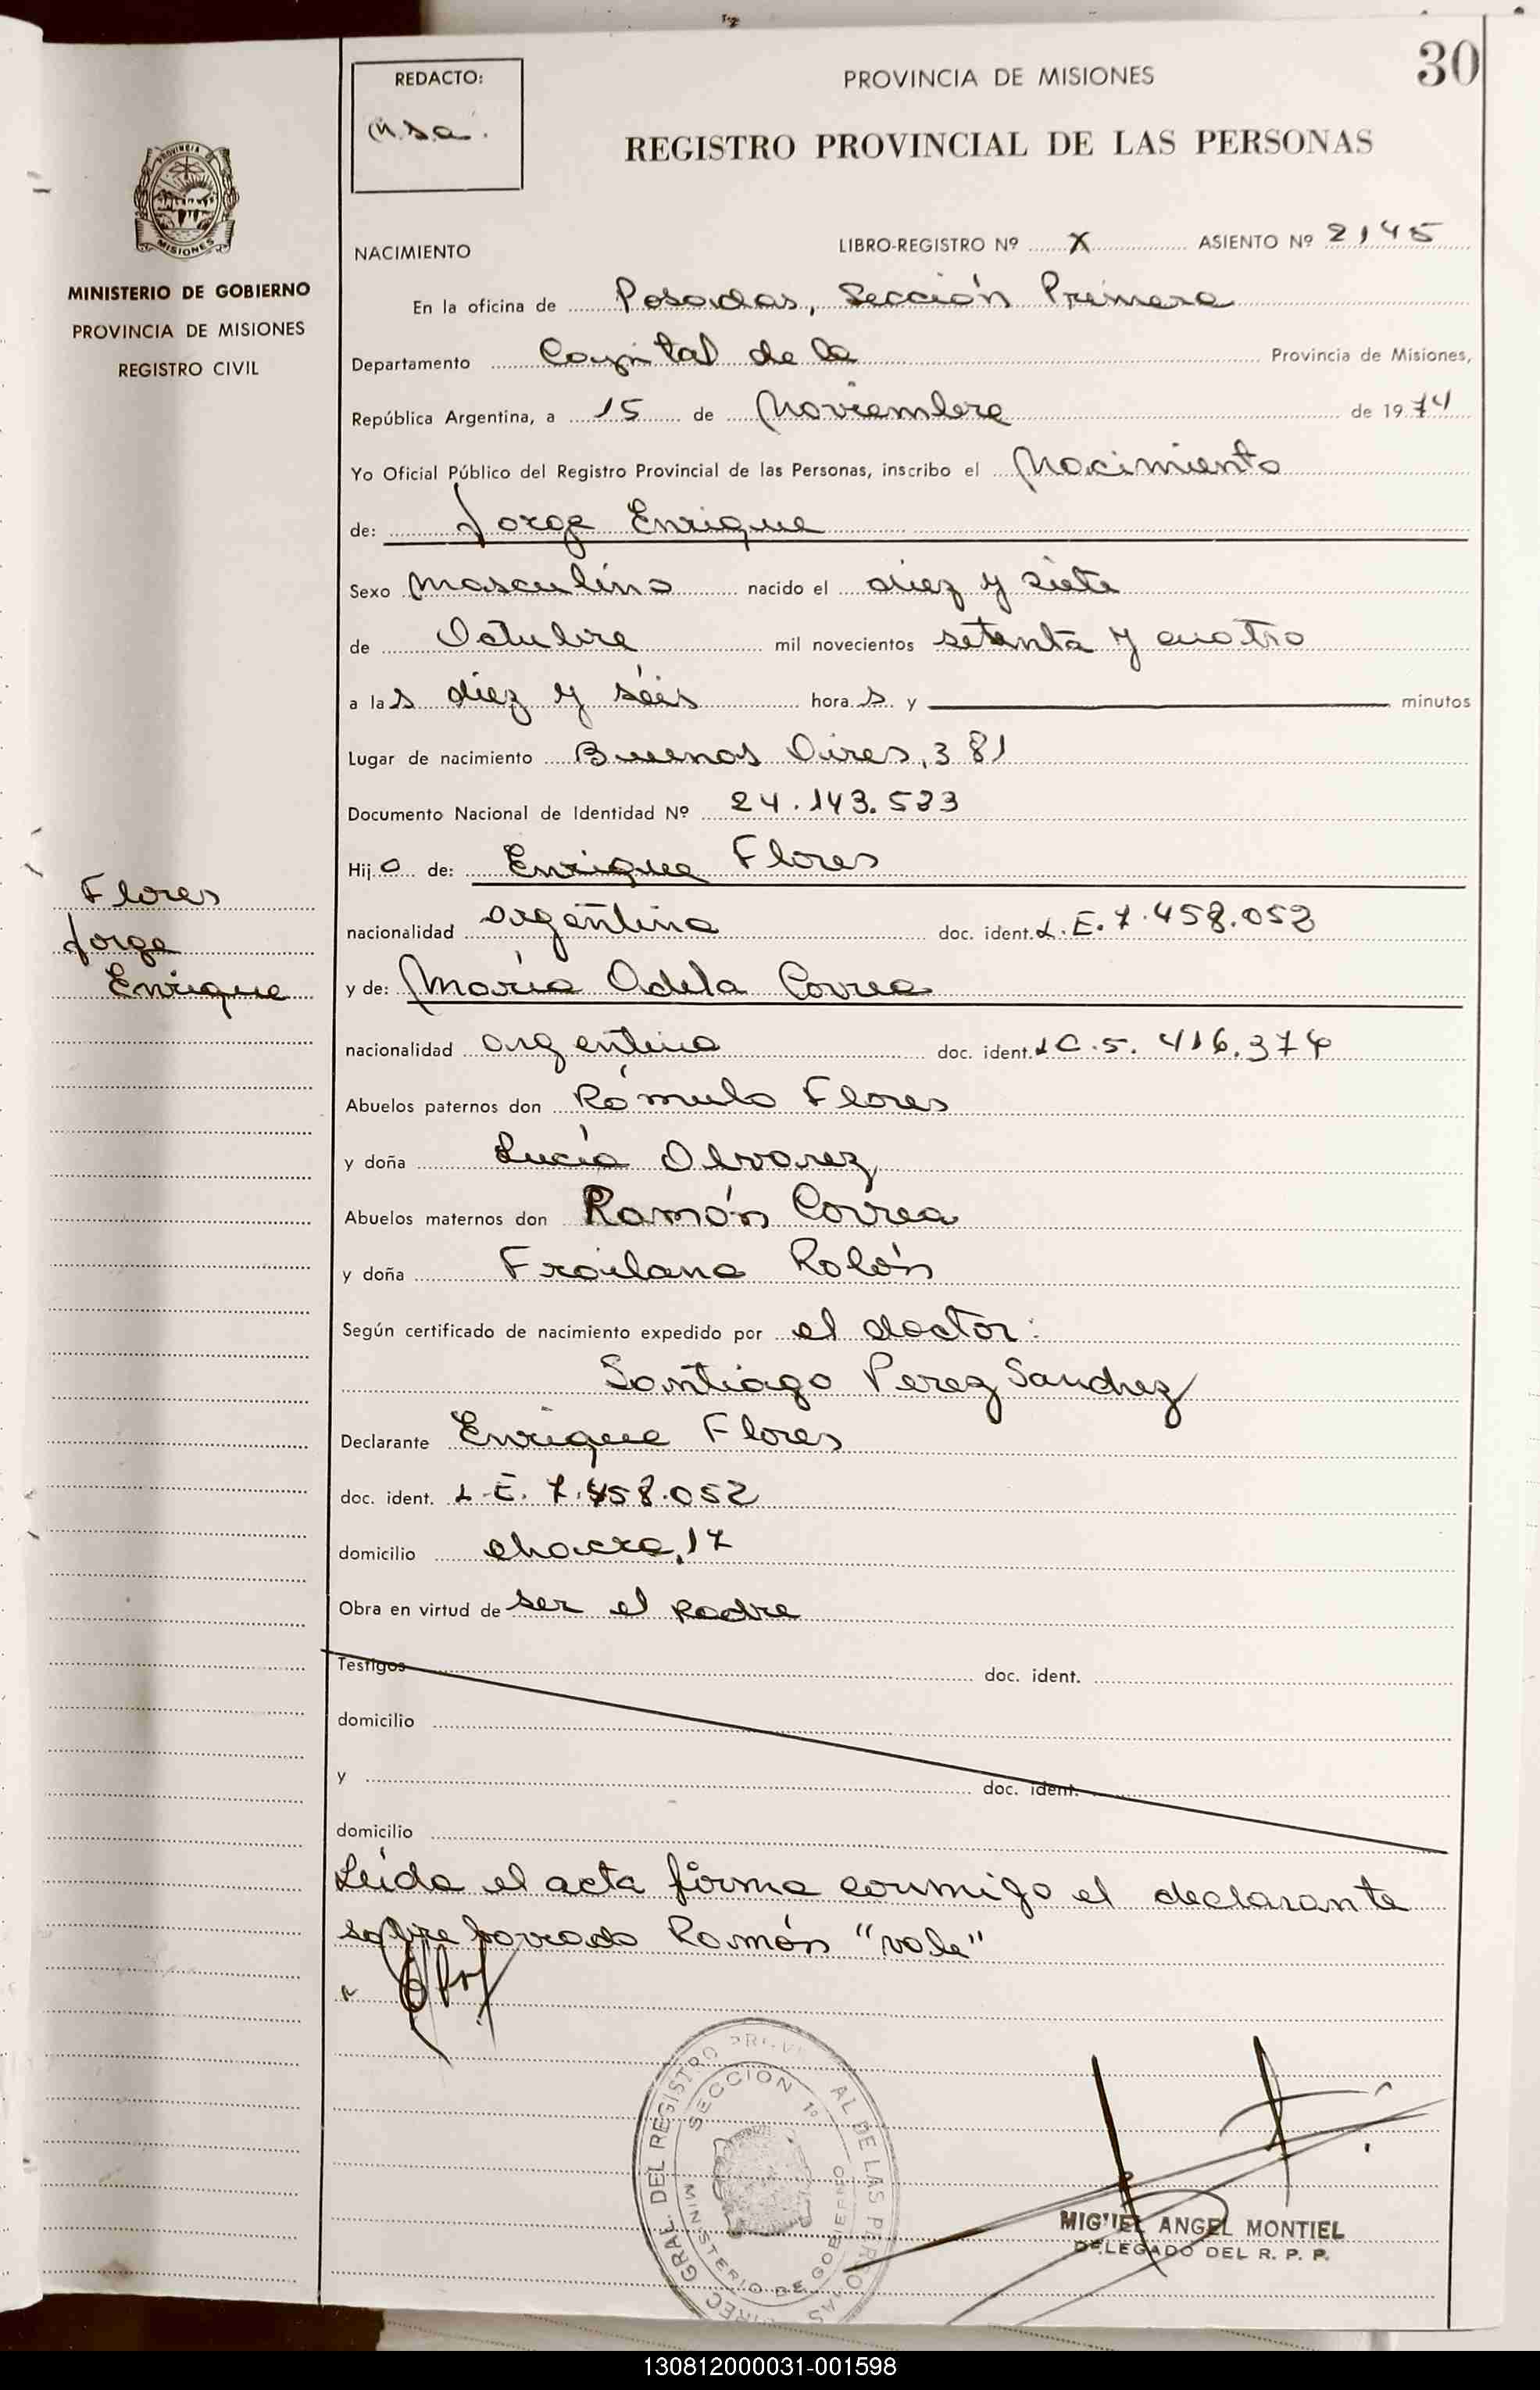 30
REDACTO:
m.s.a.
PROVINCIA DE MISIONES
REGISTRO PROVINCIAL DE LAS PERSONAS
PROVINCIA DE
MISIONES
MINISTERIO DE GOBIERNO
PROVINCIA DE MISIONES
REGISTRO CIVIL
NACIMIENTO LIBRO-REGISTRO Nº X ASIENTO Nº 2145
En la oficina de Posadas, Sección Primera
Departamento Capital de la Provincia de Misiones,
República Argentina, a 15 de Noviembre de 1974
Yo Oficial Público del Registro Provincial de las Personas, inscribo el Nacimiento
de: Jorge Enrique
Sexo masculino nacido el diez y siete
de Octubre mil novecientos setenta y cuatro
a las diez y séis horas y minutos
Lugar de nacimiento Buenos Aires, 381
Documento Nacional de Identidad Nº 24.143.533
Hijo de: Enrique Flores
nacionalidad argentina doc. ident. L.E. 7.458.052
y de: María Adela Correa
nacionalidad argentina doc. ident. LC. 5.416.374
Abuelos paternos don Rómulo Flores
y doña Lucía Alvarez
Abuelos maternos don Ramón Correa
y doña Froilana Rolón
Según certificado de nacimiento expedido por el doctor:
Santiago Perez Sanchez
Declarante Enrique Flores
doc. ident. L.E. 7.458.052
domicilio chacra, 17
Obra en virtud de ser el padre
Testigos doc. ident.
domicilio
y doc. ident.
domicilio
Leida el acta firma conmigo el declarante
sobre borrado Ramón "vale"
Flores
Jorge
Enrique
DIREC. GRAL. DEL REGISTRO PROV AL DE LAS PERSONAS
SECCION 1º
MINISTERIO DE GOBIERNO
MIGUEL ANGEL MONTIEL
DELEGADO DEL R. P. P.
130812000031-001598